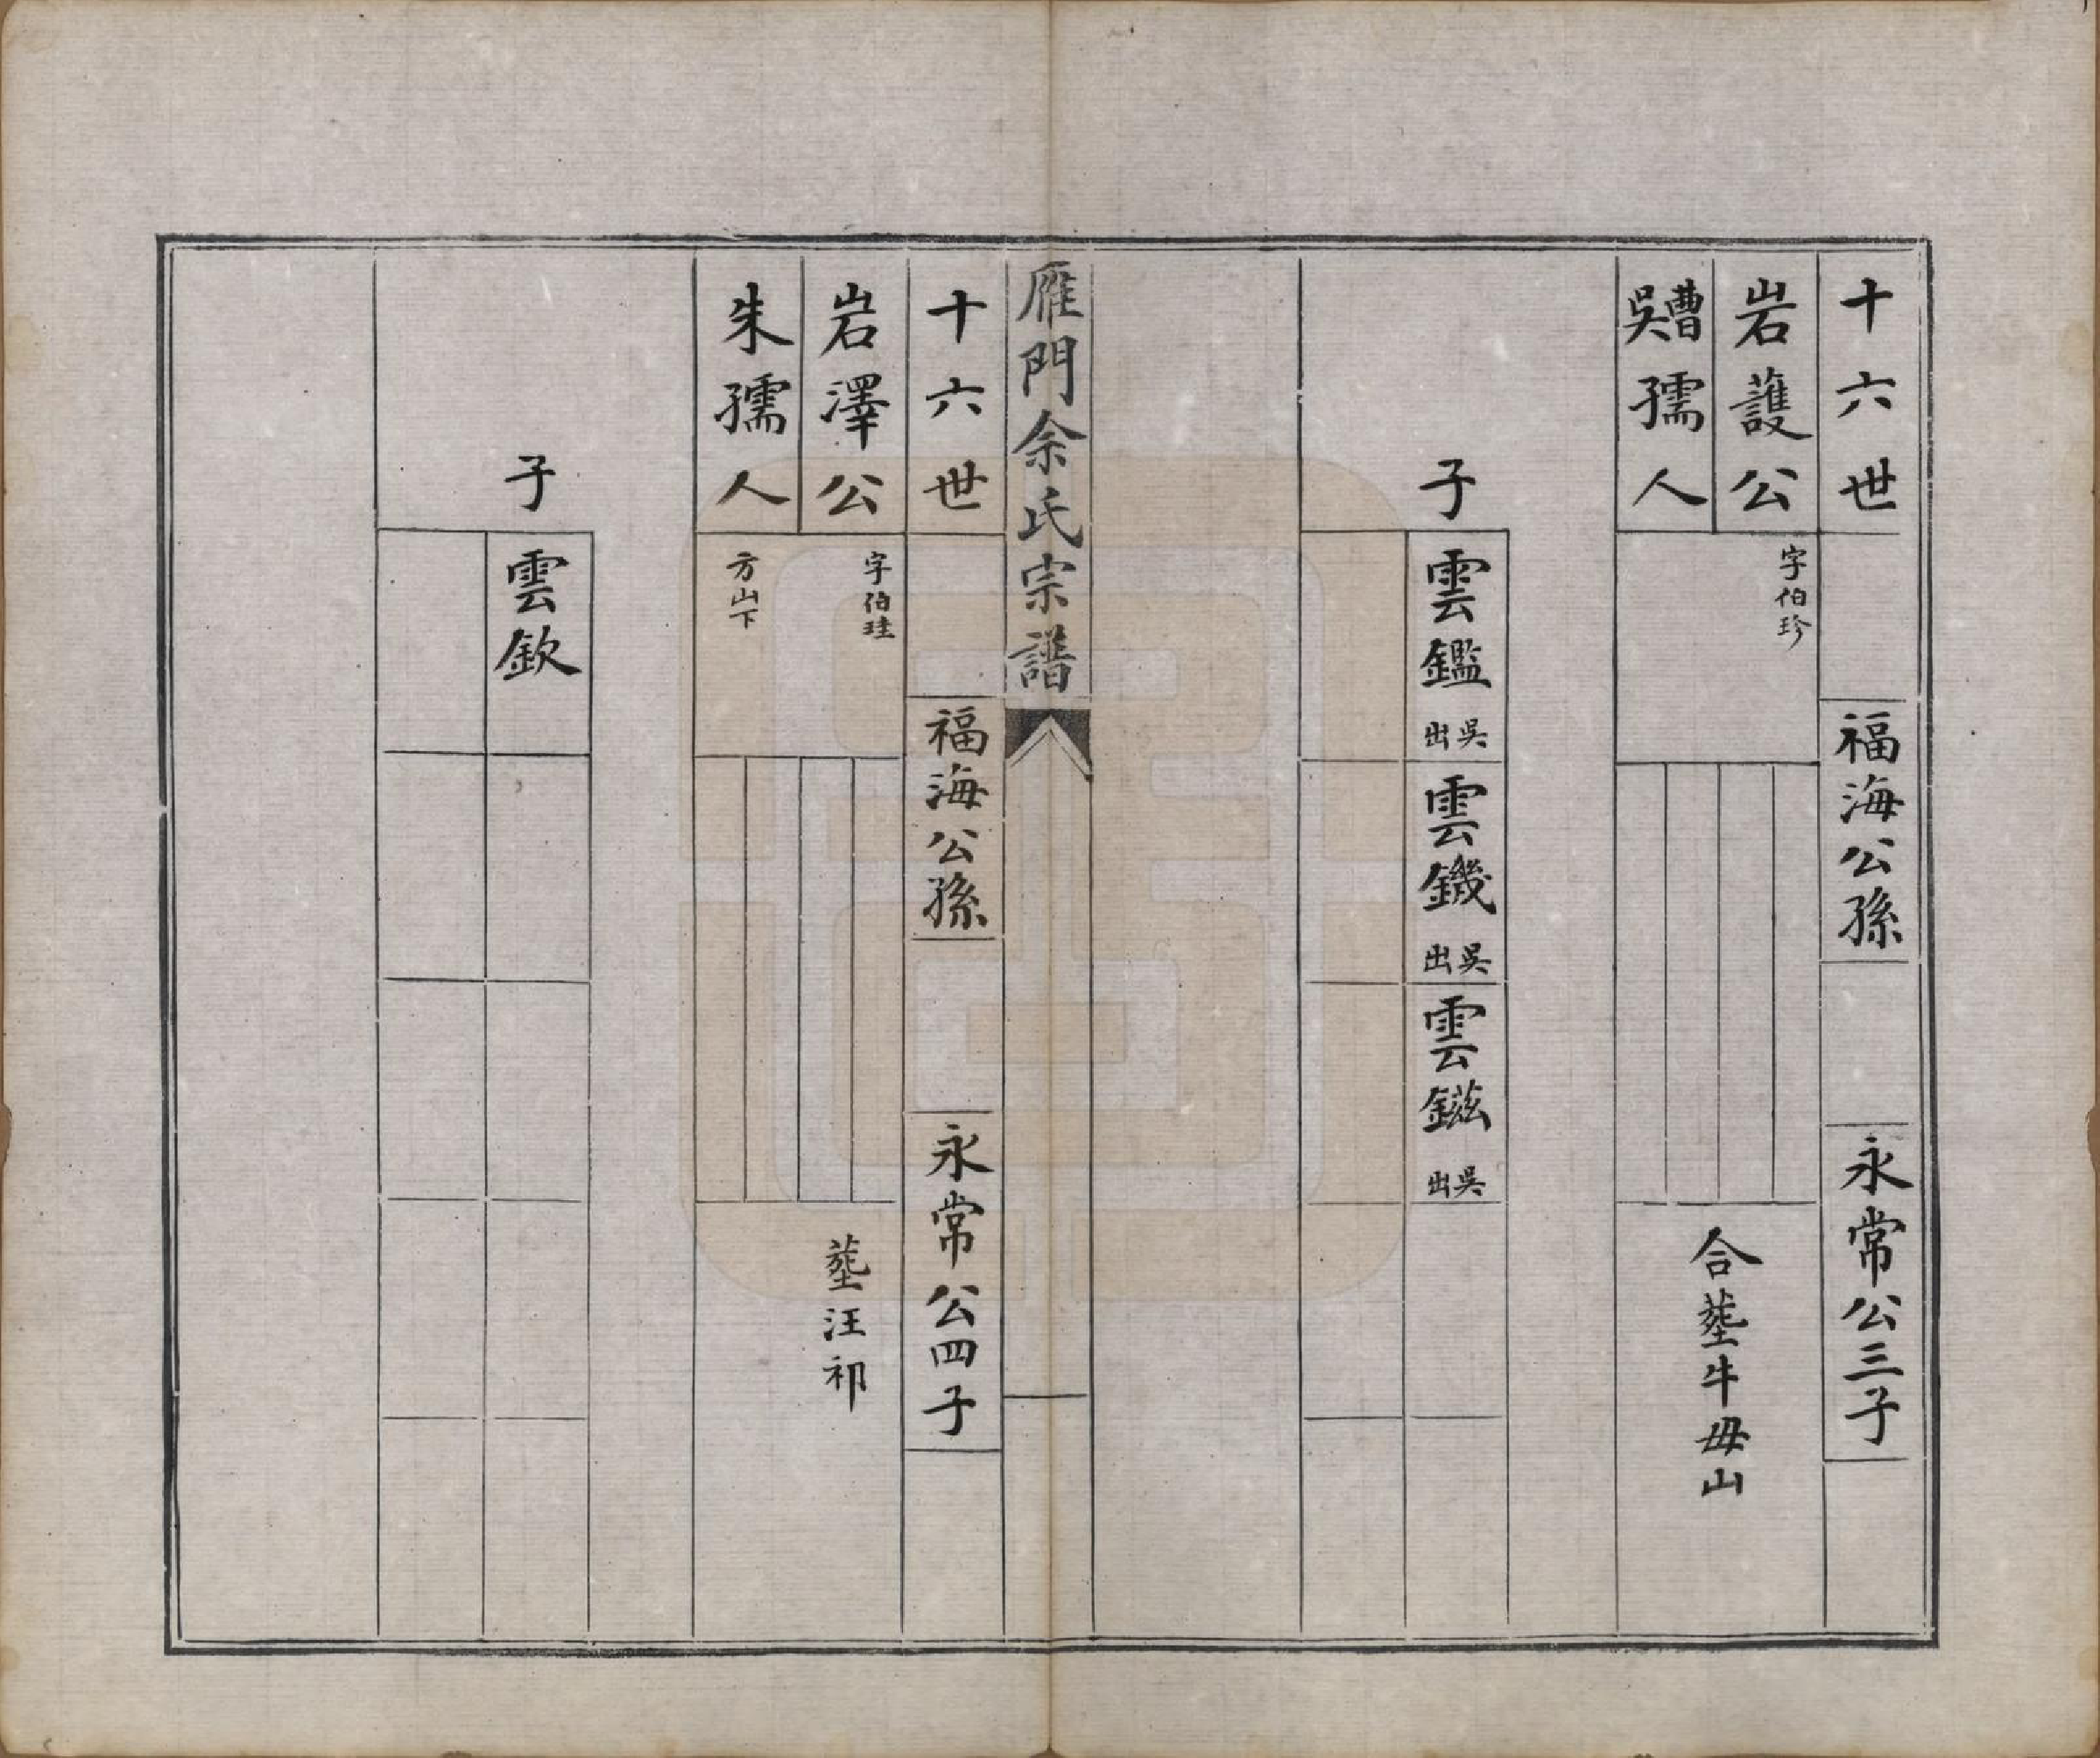 十六世
福海公孫
永常公三子
岩護公
字伯珍
曹吳孺人
合塟牛毋山
子
雲鑑
吳出
雲鐖
吳出
雲鎡
吳出
雁門余氏宗譜
十六世
福海公孫
永常公四子
岩澤公
字伯珪
朱孺人
方山下
塟汪祁
子
雲欽